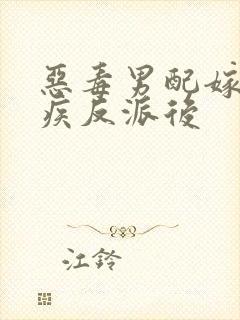 惡毒男配嫁
疾反派後
江鈴